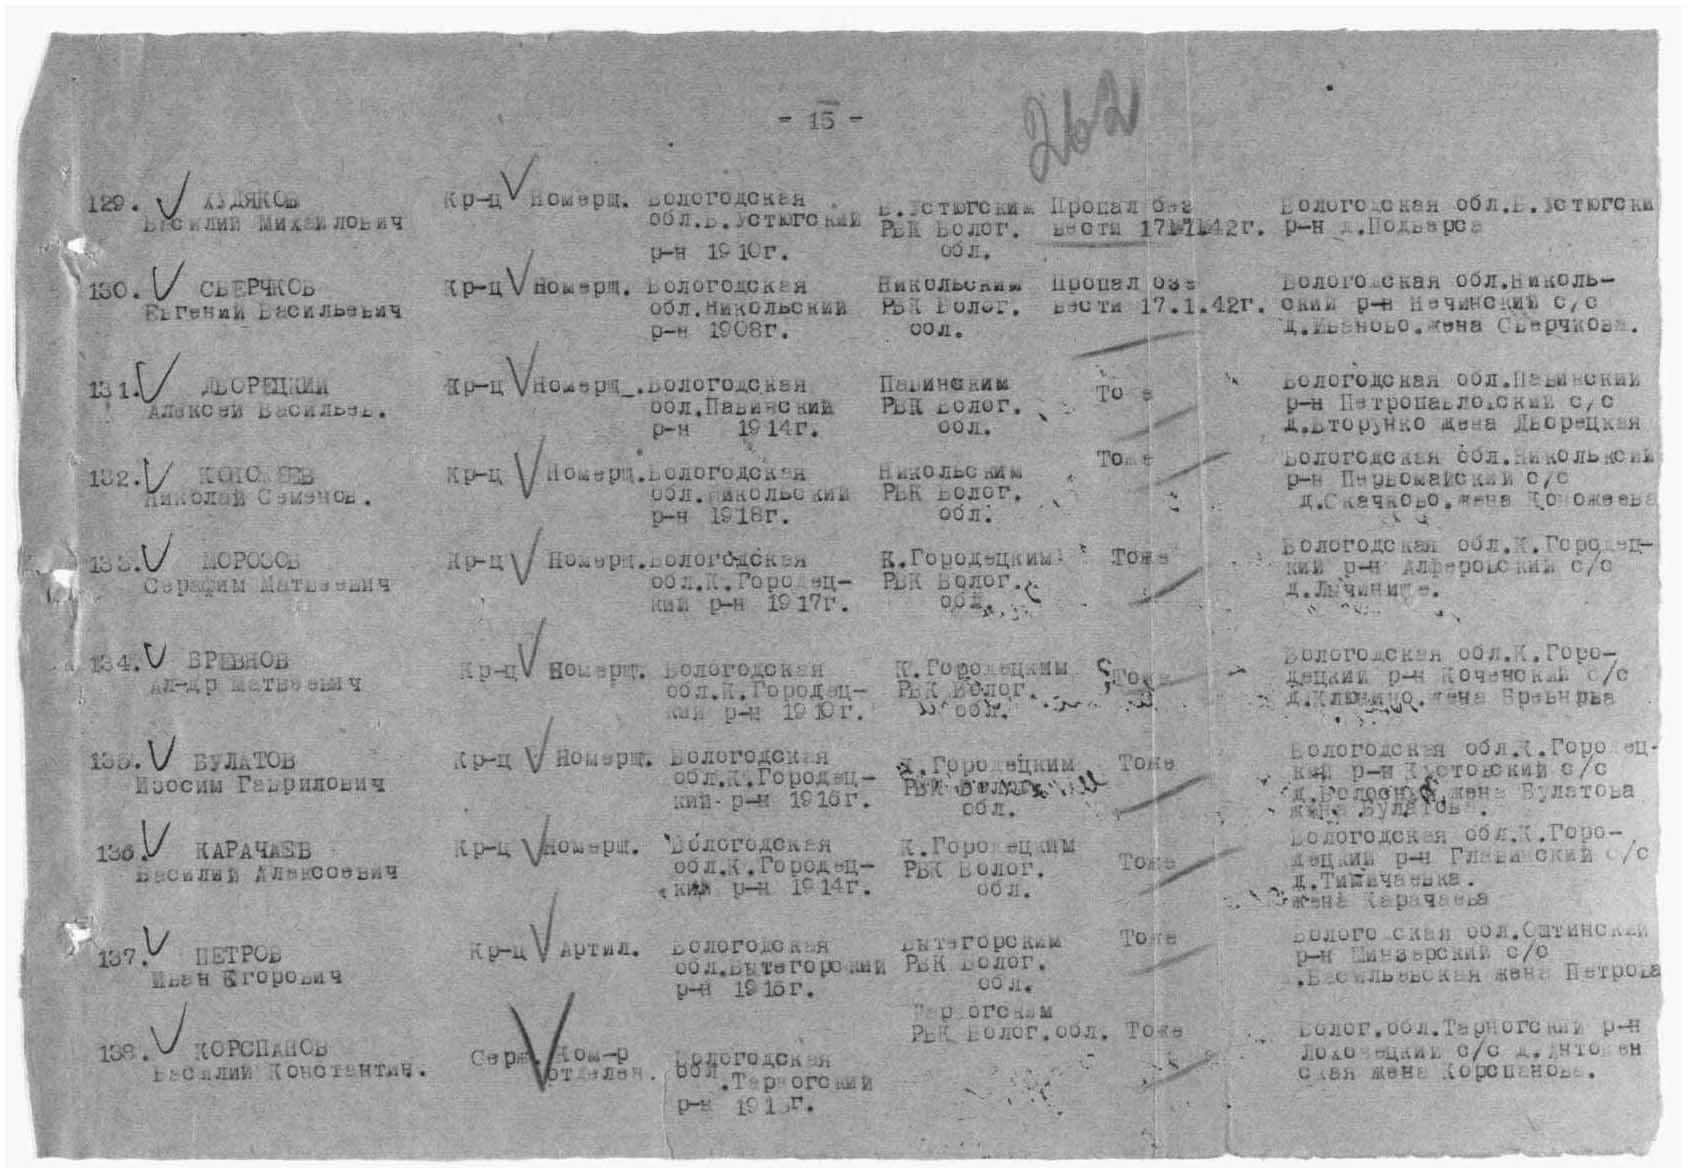 - 15 -
262
129. ХУДЯКОВ Кр-ц Номерщ. Вологодская В.Устюгским Пропал без Вологодская обл.В.Устюгски
Василий Михайлович обл.В.Устюгский РВК Волог. вести 17.1.42г. р-н д.Подверса
р-н 1910г. обл.
130. СВЕРЧКОВ Кр-ц Номерщ. Вологодская Никольским Пропал без Вологодская обл.Николь-
Евгений Васильевич обл.Никольский РВК Волог. вести 17.1.42г. ский р-н Нечинский с/с
р-н 1908г. обл. д.Иваново.жена Сверчкова.
131. ДВОРЕЦКИЙ Кр-ц Номерщ. Вологодская Павинским Тоже Вологодская обл.Павинский
Алексей Васильев. обл.Павинский РВК Волог. р-н Петропавловский с/с
р-н 1914г. обл. д.Вторунко жена Дворецкая
132. КОНОЖЕЕВ Кр-ц Номерщ. Вологодская Никольским Тоже Вологодская обл.Никольксий
Николай Семенов. обл.Никольский РВК Волог. р-н Первомайский с/с
р-н 1918г. обл. д.Скачково.жена Коножеева
133. МОРОЗОВ Кр-ц Номерщ. Вологодская К.Городецким Тоже Вологодская обл.К.Городец-
Серафим Матвеевич обл.К.Городец- РВК Волог. кий р-н Алферовский с/с
кий р-н 1917г. обл. д.Лычинище.
134. БРЕВНОВ Кр-ц Номерщ. Вологодская К.Городецким Тоже Вологодская обл.К.Горо-
Ал-др Матвеевич обл.К.Городец- РВК Волог. децкий р-н Коченский с/с
кий р-н 1910г. обл. д.Клюкино.жена Бревнова
135. БУЛАТОВ Кр-ц Номерщ. Вологодская К.Городецким Тоже Вологодская обл.К.Городец-
Изосим Гаврилович обл.К.Городец- РВК Волог. кий р-н с/с
кий р-н 1916г. обл. д. жена Булатова
жена Булатова.
136. КАРАЧАЕВ Кр-ц Номерщ. Вологодская К.Городецким Тоже Вологодская обл.К.Горо-
Василий Алексеевич обл.К.Городец- РВК Волог. децкий р-н Главинский с/с
кий р-н 1914г. обл. д.Тишичаевка.
жена Карачаева
137. ПЕТРОВ Кр-ц Артил. Вологодская Вытегорским Тоже Вологодская обл.Оштинский
Иван Егорович обл.Вытегорский РВК Волог. р-н Шимзерский с/с
р-н 1916г. обл. д.Васильевская жена Петрова
138. КОРСПАНОВ Серж. Ком-р Вологодская Тарногским Тоже Волог.обл.Тарногский р-н
Василий Константин. отделен. обл.Тарногский РВК Волог.обл. Лохонецкий с/с д.Антомен
р-н ская жена Корспанова.